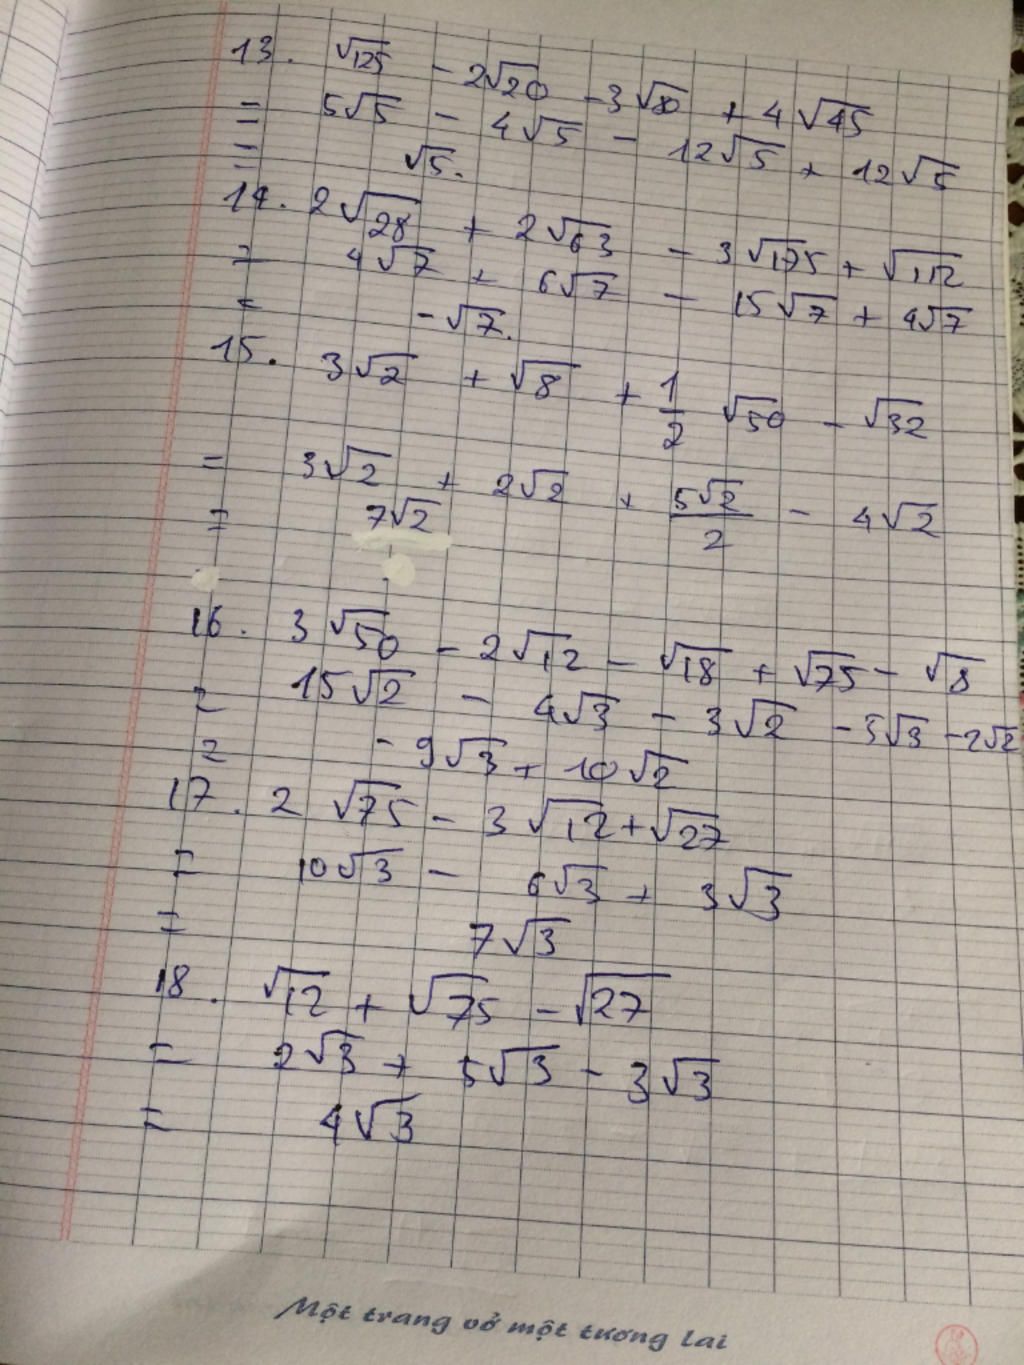 13. √125 - 2√20 - 3√80 + 4√45
= 5√5 - 4√5 - 12√5 + 12√5
= √5.
14. 2√28 + 2√63 - 3√175 + √112
= 4√7 + 6√7 - 15√7 + 4√7
= -√7.
15. 3√2 + √8 + 1/2 √50 - √32
= 3√2 + 2√2 + 5√2/2 - 4√2
= 7√2
16. 3√50 - 2√12 - √18 + √75 - √8
= 15√2 - 4√3 - 3√2 - 5√3 - 2√2
= - 9√3 + 10√2
17. 2√75 - 3√12 + √27
= 10√3 - 6√3 + 3√3
= 7√3
18. √12 + √75 - √27
= 2√3 + 5√3 - 3√3
= 4√3
Một trang vở một tương lai